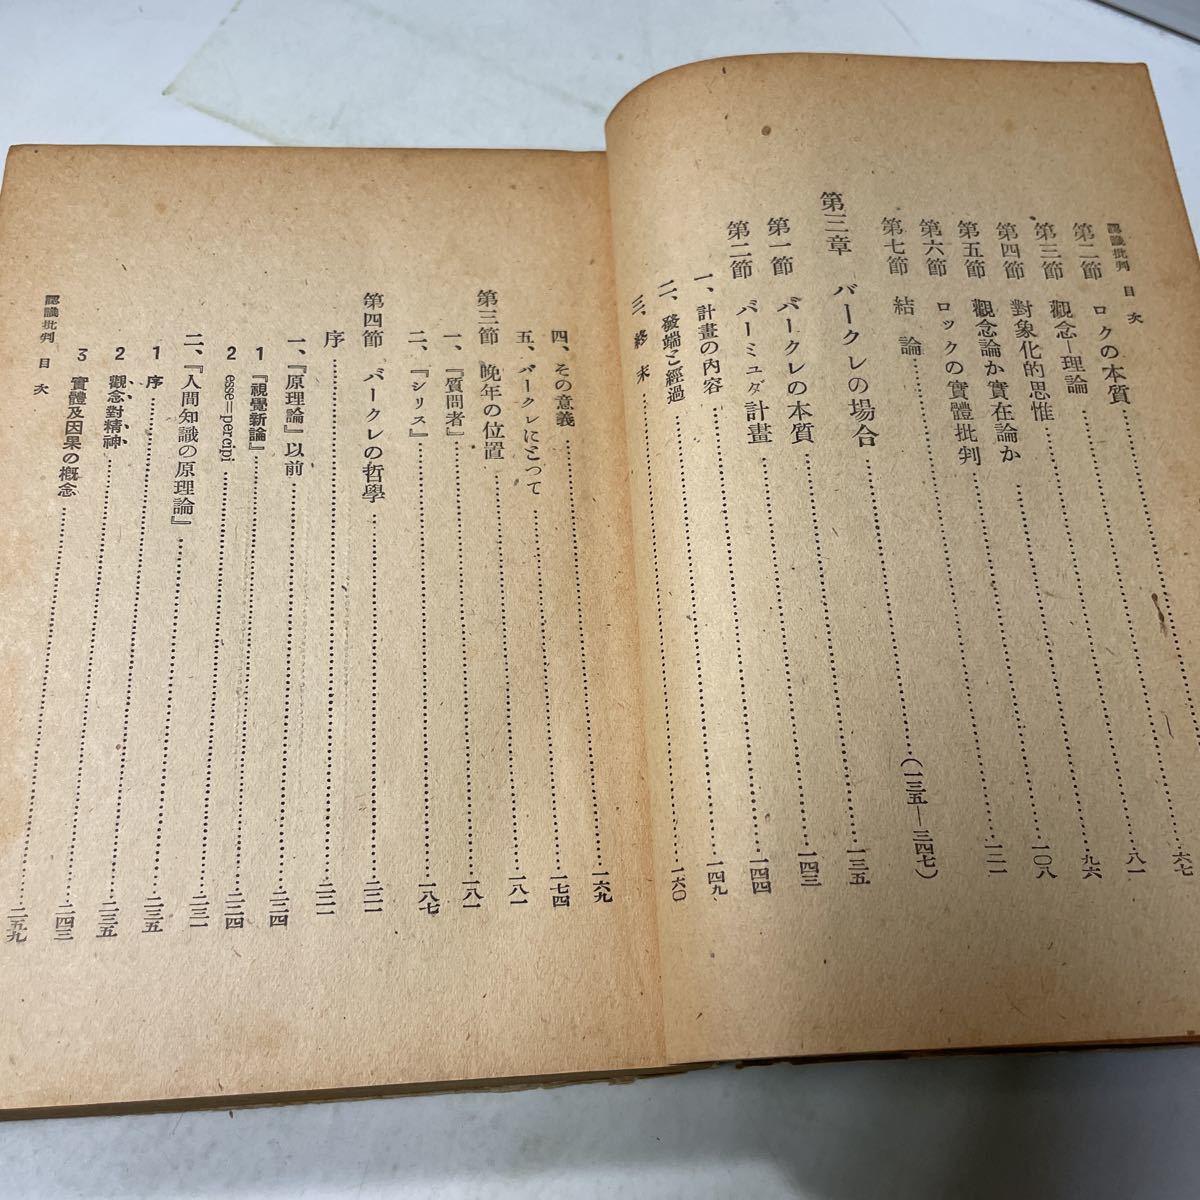 認識批判 目次
第二節 ロクの本質
第三節 觀念―理論……六七
第四節 對象化的思惟……八一
第五節 觀念論か實在論か……九六
第六節 ロックの實體批判……一〇八
第七節 結論……一二一
第三章 バークレの場合……(一三五―三四七)
第一節 バークレの本質……一三五
第二節 バーミュダ計畫……一四三
一、計畫の內容……一四四
二、發端と經過……一四九
三、終末……一六〇
四、その意義……一六九
五、バークレにとつて……一七四
第三節 晩年の位置……一八一
一、『質問者』……一八一
二、『シリス』……一八七
第四節 バークレの哲學……二二一
序……二二一
一、『原理論』以前……二二四
1 『視覺新論』……二二四
2 esse=percipi……二三一
二、『人間知識の原理論』……二三五
1 序……二三五
2 觀念對精神……二四三
3 實體及因果の概念……二五九
認識批判 目次